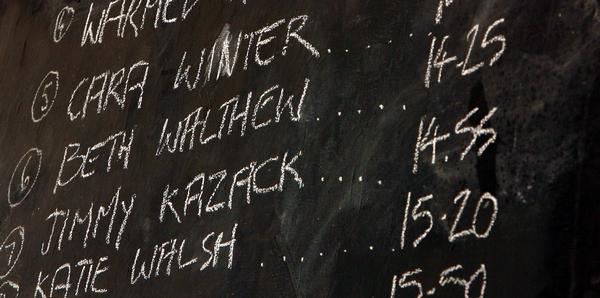 WARMED
5 CARA WINTER .... 14.25
6 BETH WALTHEW ..... 14.55
7 JIMMY KAZACK .... 15.20
KATIE WALSH .... 15.50